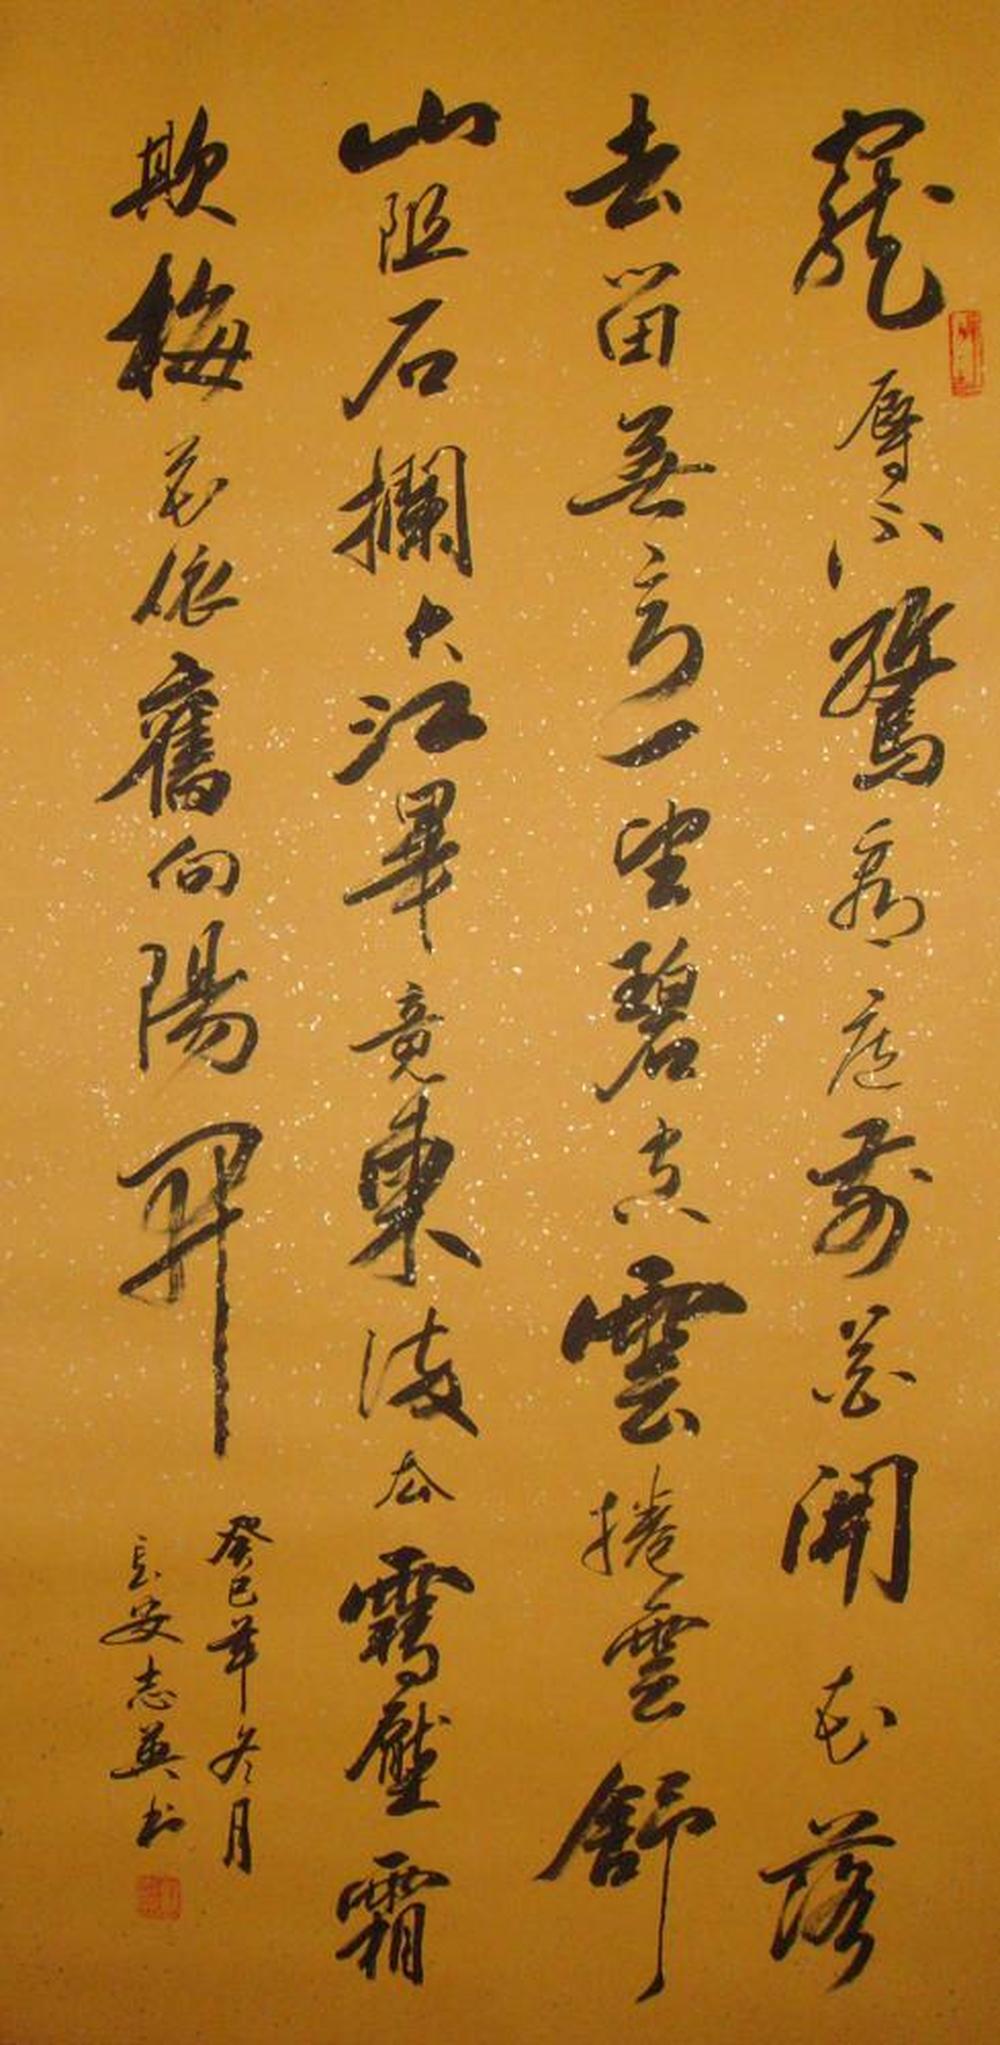 寵辱不驚看庭前花開花落
去留無意一望碧空雲捲雲舒
山阻石攔大江畢竟東流去雪壓霜
欺梅花依舊向陽開
癸巳年冬月
長安志英書